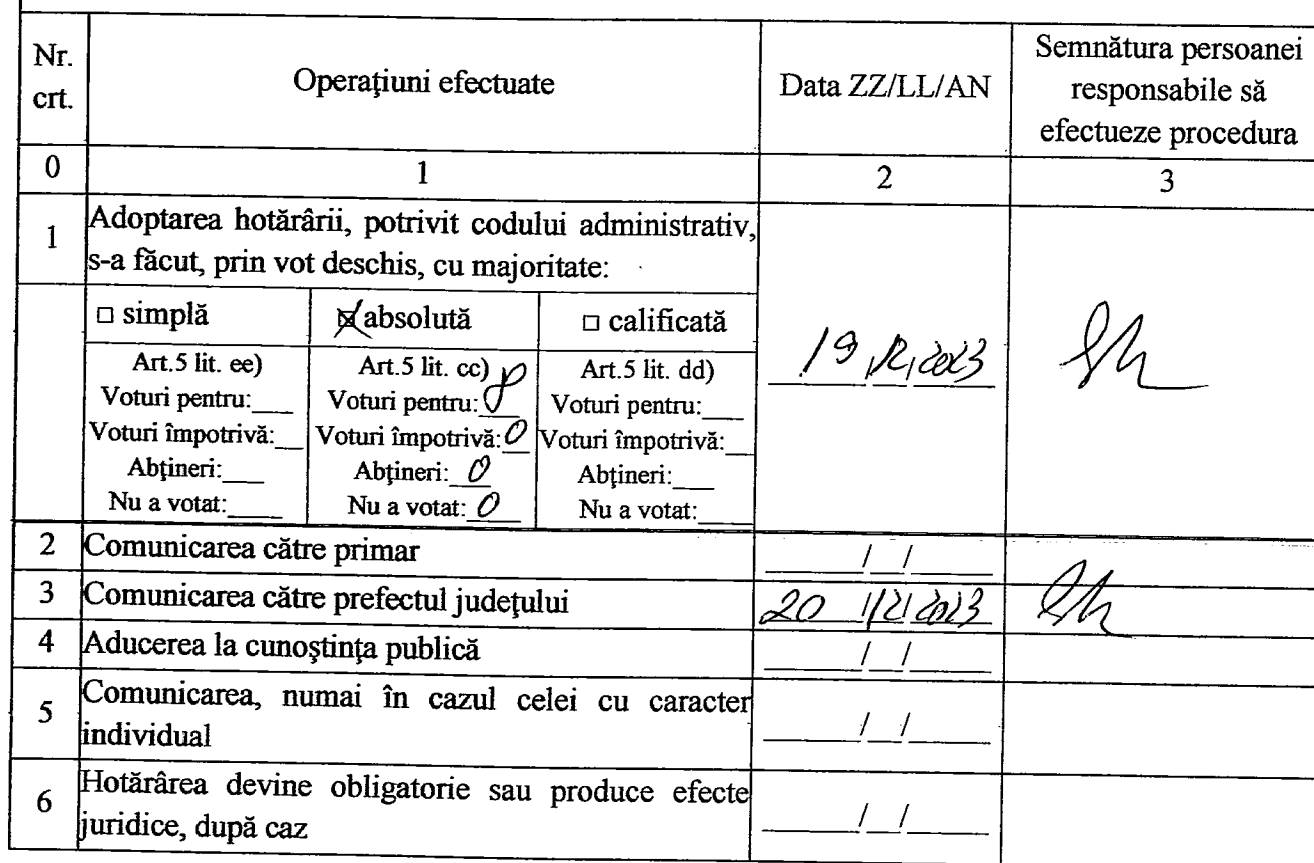 Nr. crt.
Operaţiuni efectuate
Data ZZ/LL/AN
Semnătura persoanei responsabile să efectueze procedura
0
1
2
3
1
Adoptarea hotărârii, potrivit codului administrativ,
s-a făcut, prin vot deschis, cu majoritate:
□ simplă
☒ absolută
□ calificată
Art.5 lit. ee)
Voturi pentru:___
Voturi împotrivă:__
Abţineri:___
Nu a votat:____
Art.5 lit. cc)
Voturi pentru: 8
Voturi împotrivă: 0
Abţineri: 0
Nu a votat: 0
Art.5 lit. dd)
Voturi pentru:___
Voturi împotrivă:__
Abţineri:___
Nu a votat:____
19/12/2023
2
Comunicarea către primar
____/__/____
3
Comunicarea către prefectul judeţului
20/12/2023
4
Aducerea la cunoştinţa publică
____/__/____
5
Comunicarea, numai în cazul celei cu caracter
individual
____/__/____
6
Hotărârea devine obligatorie sau produce efecte
juridice, după caz
____/__/____